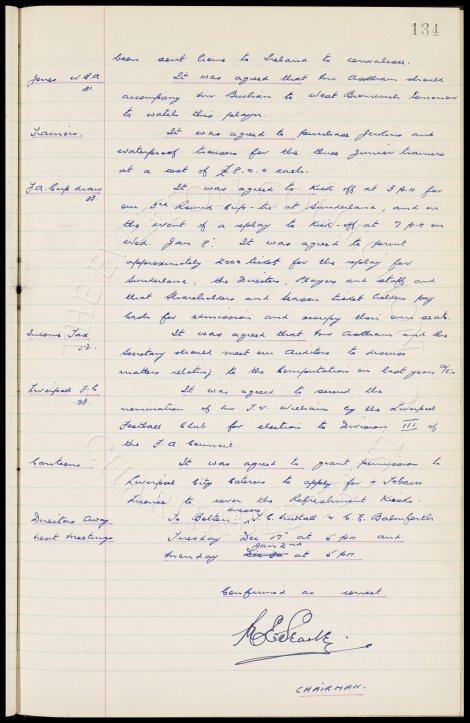 134
been sent home to Ireland to convalesce.
Jones. W.G.A It was agreed that Mr Aostham should
accompany Mr Buchan to West Bromwich tomorrow
to watch this player.
Trainers. It was agreed to purchase Jerkins and
waterproof trousers for the three junior trainers
at a cost of £8.0.0 each.
F.A. Cup draw It was agreed to kick off at 3 p.m for
our 3rd Round Cup-tie at Sunderland, and in
the event of a replay to kick-off at 7 p.m on
Wed Jan 8. It was agreed to print
approximately 2000 tickets for the replay for
Sunderland, the Directors, Players and staff, and
that Shareholders and Season ticket holders pay
cash for admission and occupy their own seats.
Income Tax It was agreed that Mr and the
Secretary should meet our Auditors to discuss
matters relating to the Computation on last years a/cs.
Liverpool F.C It was agreed to second the
nomination of Mr T.V. Williams by the Liverpool
Football Club for election to Division III of
the F.A. Council.
Canteens It was agreed to grant permission to
Liverpool City Caterers to apply for a Tobacco
Licence to cover the Refreshment Kiosks.
Directors Away To Bolton: Messrs J.C. Nuttall & C.E. Balmforth
next meetings Tuesday Dec 17 at 5 p.m and
Monday Jan 2nd at 5 p.m.
Confirmed as correct
CHAIRMAN.